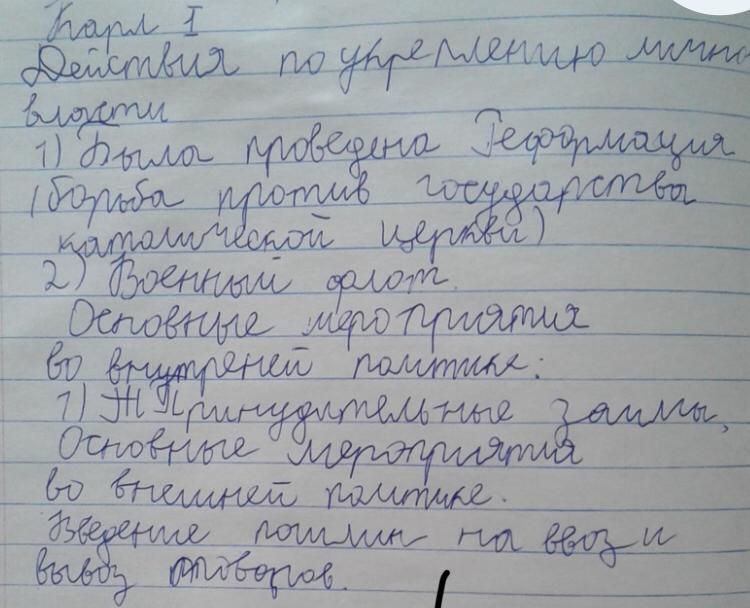 Карл I
Действия по укреплению лично
власти
1) Была проведена Реформация
(борьба против государства
католической церкви)
2) Военный флот.
Основные мероприятия
во внутреней политике:
1) Принудительные займы,
Основные мероприятия
во внешней политике.
Введение пошлин на ввоз и
вывоз товаров.